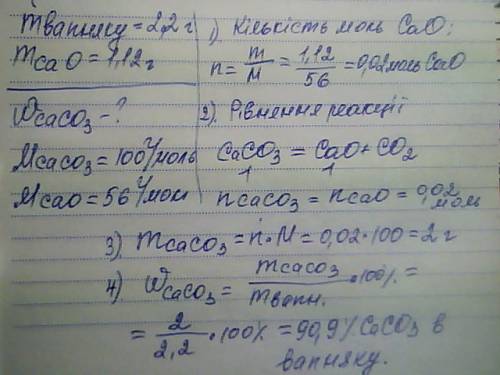 mвапняку = 2,2 г
mCaO = 1,12 г
WCaCO₃ - ?
MCaCO₃ = 100 г/моль
MCaO = 56 г/моль
1) Кількість моль CaO:
n = m/M = 1,12/56 = 0,02 моль CaO
2). Рівнення реакції
CaCO₃ = CaO + CO₂
1 1
nCaCO₃ = nCaO = 0,02 моль
3) mCaCO₃ = n · M = 0,02 · 100 = 2 г
4) WCaCO₃ = mCaCO₃/mвапн. · 100% =
= 2/2,2 · 100% = 90,9% CaCO₃ в
вапняку.